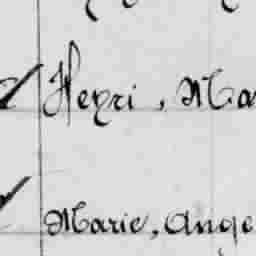 Henri, Ma
Marie, Ange